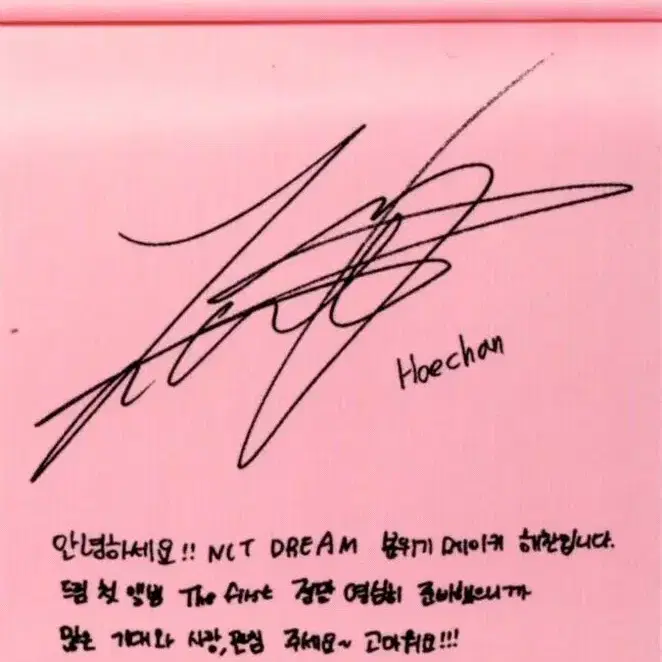 Haechan
안녕하세요!! NCT DREAM 분위기 메이커 해찬입니다.
드림 첫 앨범 The First 정말 열심히 준비했으니까
많은 기대와 사랑, 관심 주세요~ 고마워요!!!